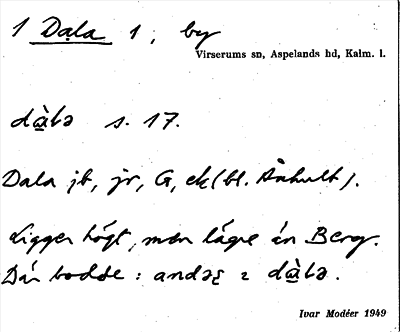 1 Dala 1, by
Virserums sn, Aspelands hd, Kalm. l.
dàlə s. 17.
Dala jb, jr, G, ek (bl. Åkhult).
Ligger högt, men lägre än Berg.
Där bodde: andəʂ ɪ dàlə.
Ivar Modéer 1949